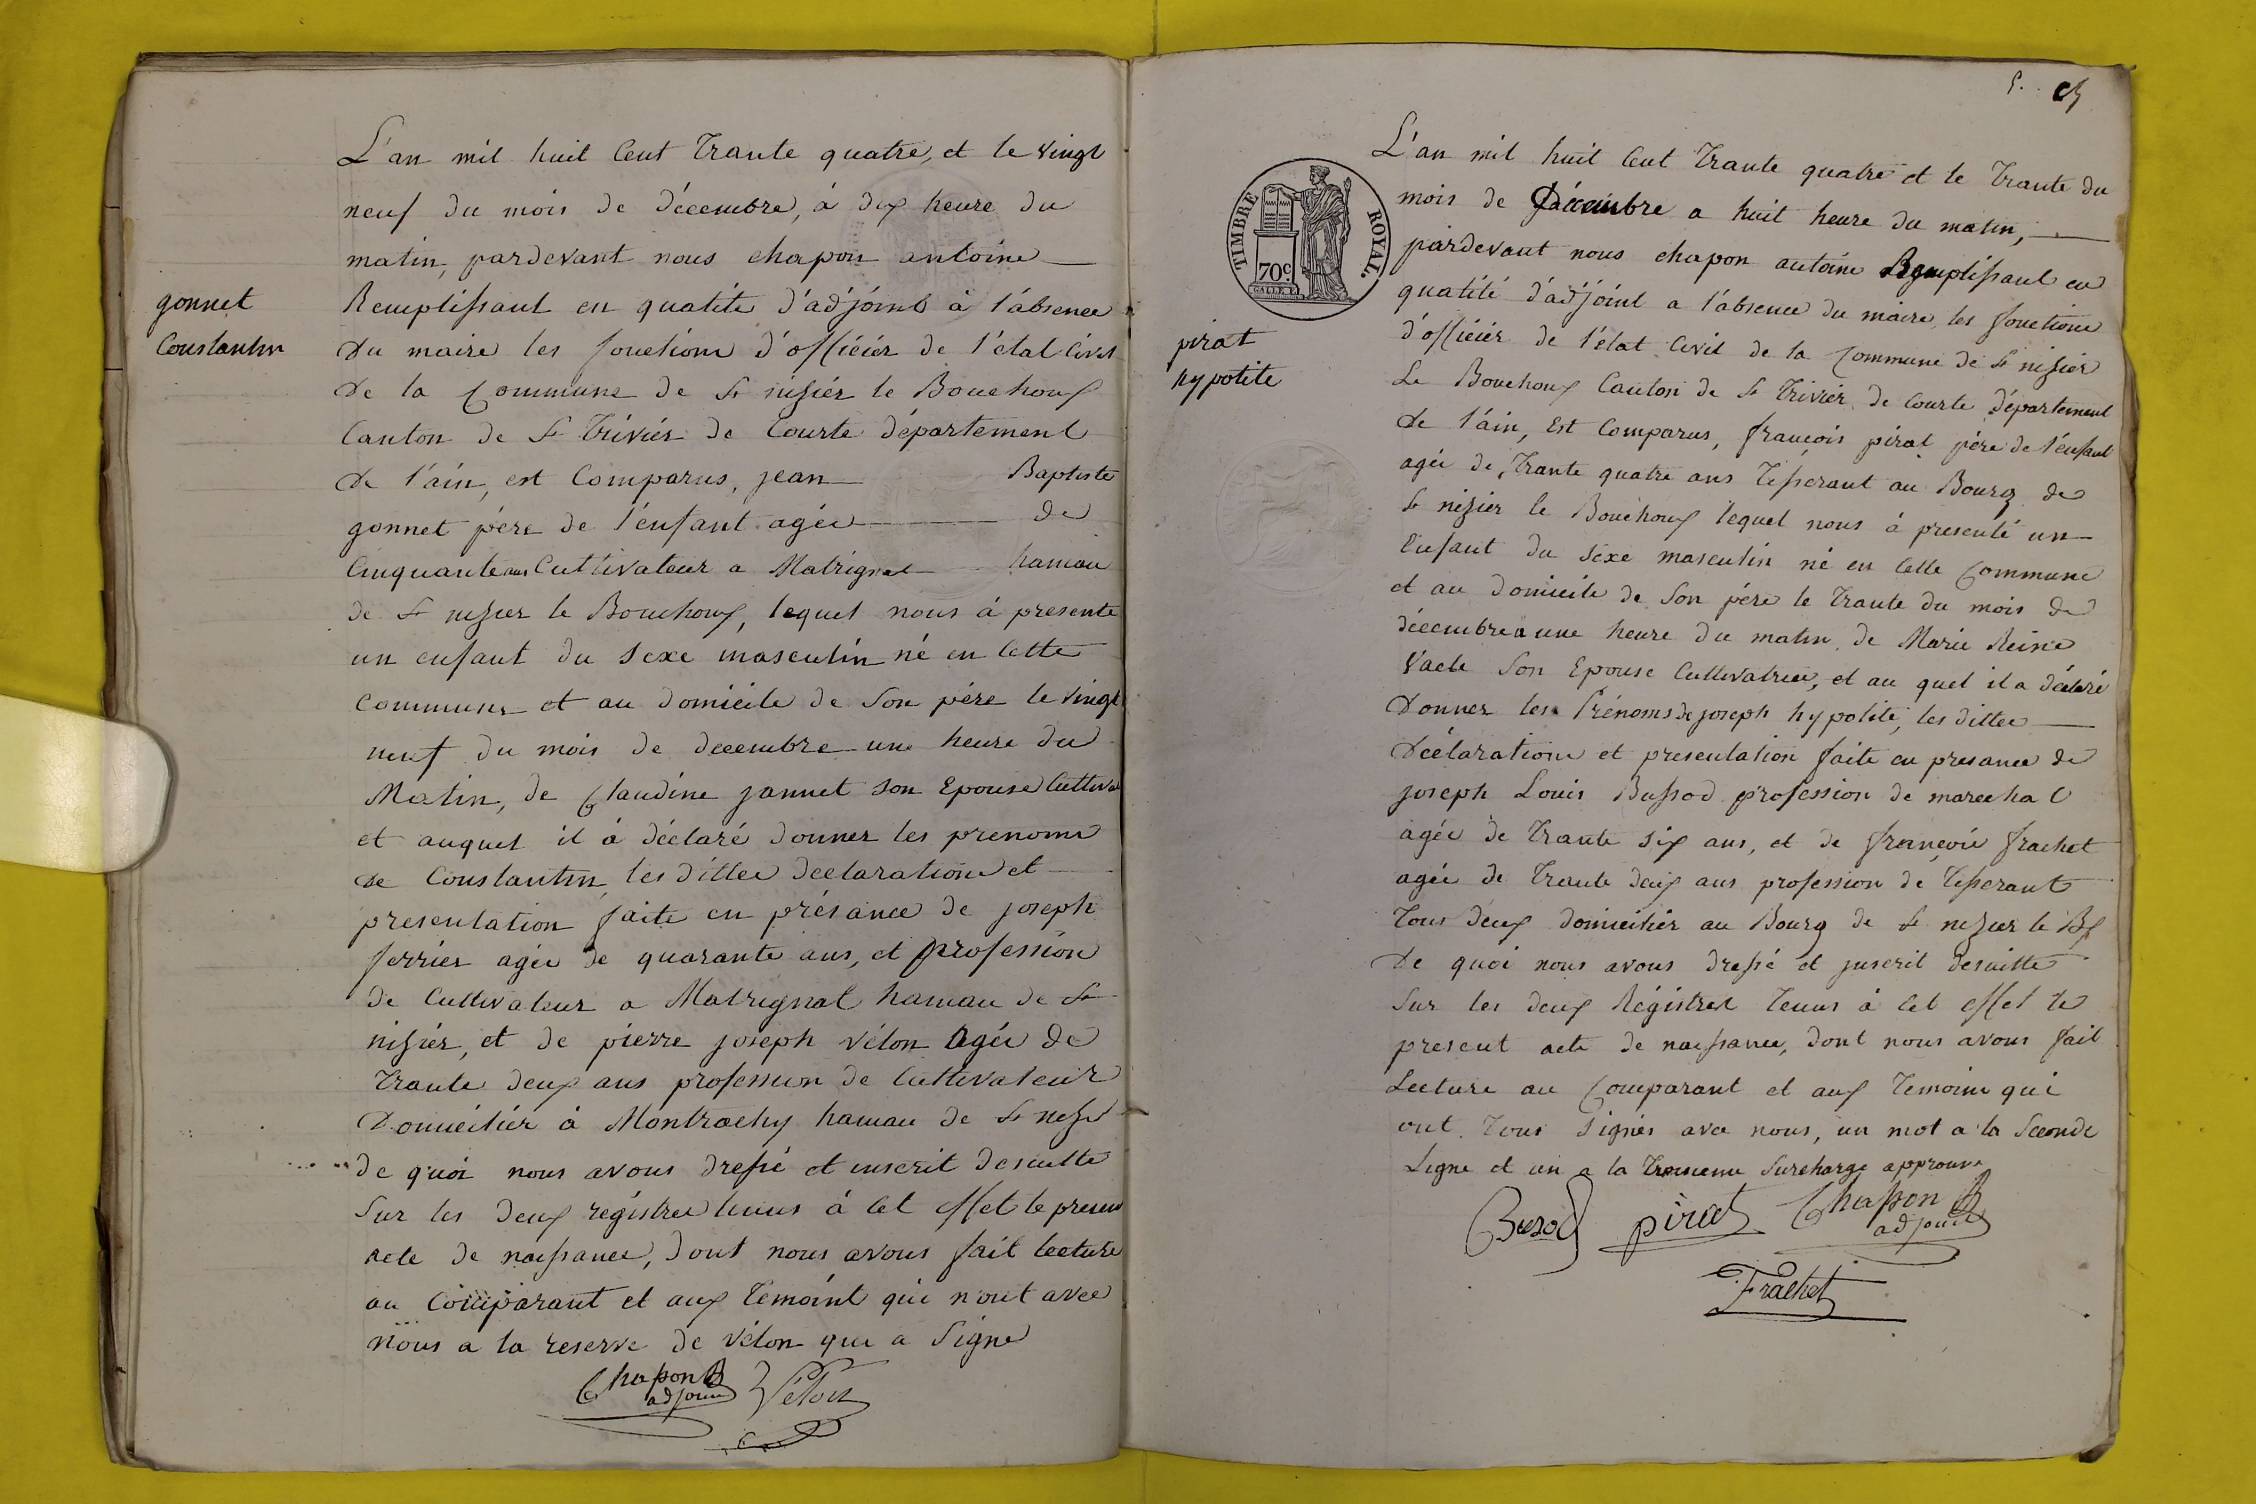 gonnet
Constantin
L'an mil huit Cent Trante quatre, et le vingt
neuf du mois de décembre, à dix heure du
matin, pardevant nous chapon antoine
Remplissant en qualité d'adjoint à l'absence
du maire les fonctions d'officiér de l'état Civil
de la Commune de St niziér le Bouchoux
Canton de St Triviér de Courte département
de l'ain, est Comparus, jean Baptiste
gonnet pére de l'enfant agée de
Cinquante ans Cultivateur a Matrignat hamau
de St nizier le Bouchoux, lequel nous à presente
un enfant du sexe masculin né en Cette
Commune et au domicile de Son pére le vingt
neuf du mois de decembre une heure du
Matin, de Claudine jannet son Epouse Cultiva
et auquel il à déclaré donner les prenoms
de Constantin, les dittes declarations et
presentation faite en présance de joseph
ferriér agée de quarante ans, et profession
de Cultivateur a Matrignat hamau de St
niziér, et de pierre joseph vélon agée de
Trante deux ans profession de Cultivateur
Domiciliér à Montrachy hamau de St niz
de quoi nous avons dressé et inscrit desuitte
Sur les deux régistres tenus à Cet effet le presen
acte de naissance, dont nous avons fait lecture
au Comparant et aux Temoint qui n'ont avec
nous a la reserve de vélon qui a Signé
Chapon
adjoint
Vélon
5.
TIMBRE ROYAL.
70c.
pirat
hypolite
L'an mil huit Cent Trante quatre et le Trante du
mois de Décembre a huit heure du matin,
pardevant nous chapon antoine Remplissant en
qualité d'adjoint a l'absence du maire, les fonctions
d'officiér de l'état Civil de la Commune de St niziér
Le Bouchoux Canton de St Triviér de Courte département
de l'ain, Est Comparus, françois pirat pére de l'enfant
agée de Trante quatre ans Tisserant au Bourg de
St niziér le Bouchoux lequel nous à presenté un
Enfant du Sexe masculin né en Cette Commune
et au domicile de Son pére le Trante du mois de
décembre à une heure du matin, de Marie Reine
Vacle Son Epouse Cultivatrice, et au quel il a déclaré
Donner les Prénoms de joseph hypolite, les dittes
déclarations et presentation faite en presance de
joseph Louis Bussod profession de marechal
agée de Trante six ans, et de françois frachet
agée de Trante deux ans profession de Tisserant
Tous deux domiciliér au Bourg de St nizier le Bx
de quoi nous avons dressé et jnscrit desuitte
Sur les deux Régistres tenus à Cet effet le
present acte de naissance, dont nous avons fait
Lecture au Comparant et aux Temoins qui
ont Tous signés avec nous, un mot a la Seconde
Ligne et un a la Troisieme Surcharge approuvé
Busod pirat Chapon
adjoint
Frachet